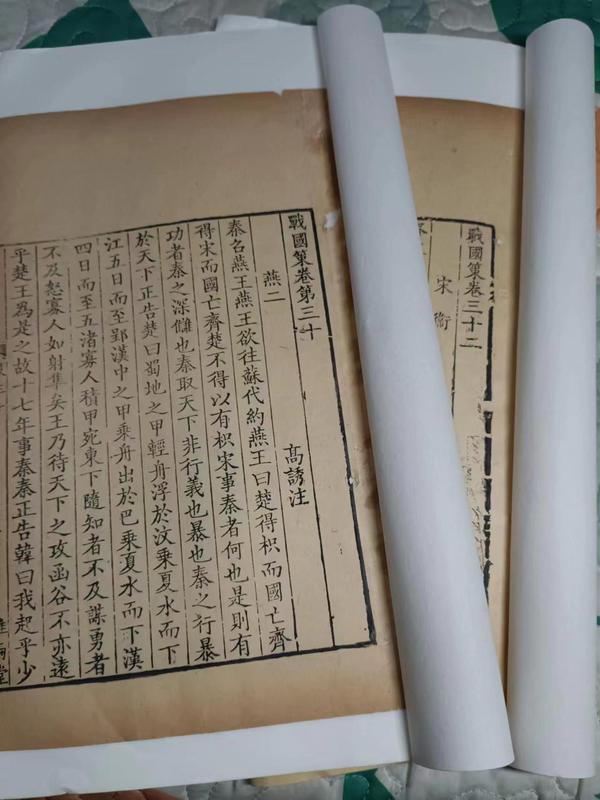 戰國策卷三十二
宋衞
戰國策卷第三十
燕二
高誘注
秦召燕王燕王欲往蘇代約燕王曰楚得枳而國亡齊
得宋而國亡齊楚不得以有枳宋事秦者何也是則有
功者秦之深讎也秦取天下非行義也暴也秦之行暴
於天下正告楚曰蜀地之甲輕舟浮於汶乘夏水而下
江五日而至郢漢中之甲乘舟出於巴乘夏水而下漢
四日而至五渚寡人積甲宛東下隨知者不及謀勇者
不及怒寡人如射隼矣王乃待天下之攻函谷不亦遠
乎楚王爲是之故十七年事秦秦正告韓曰我起乎少
雨堂